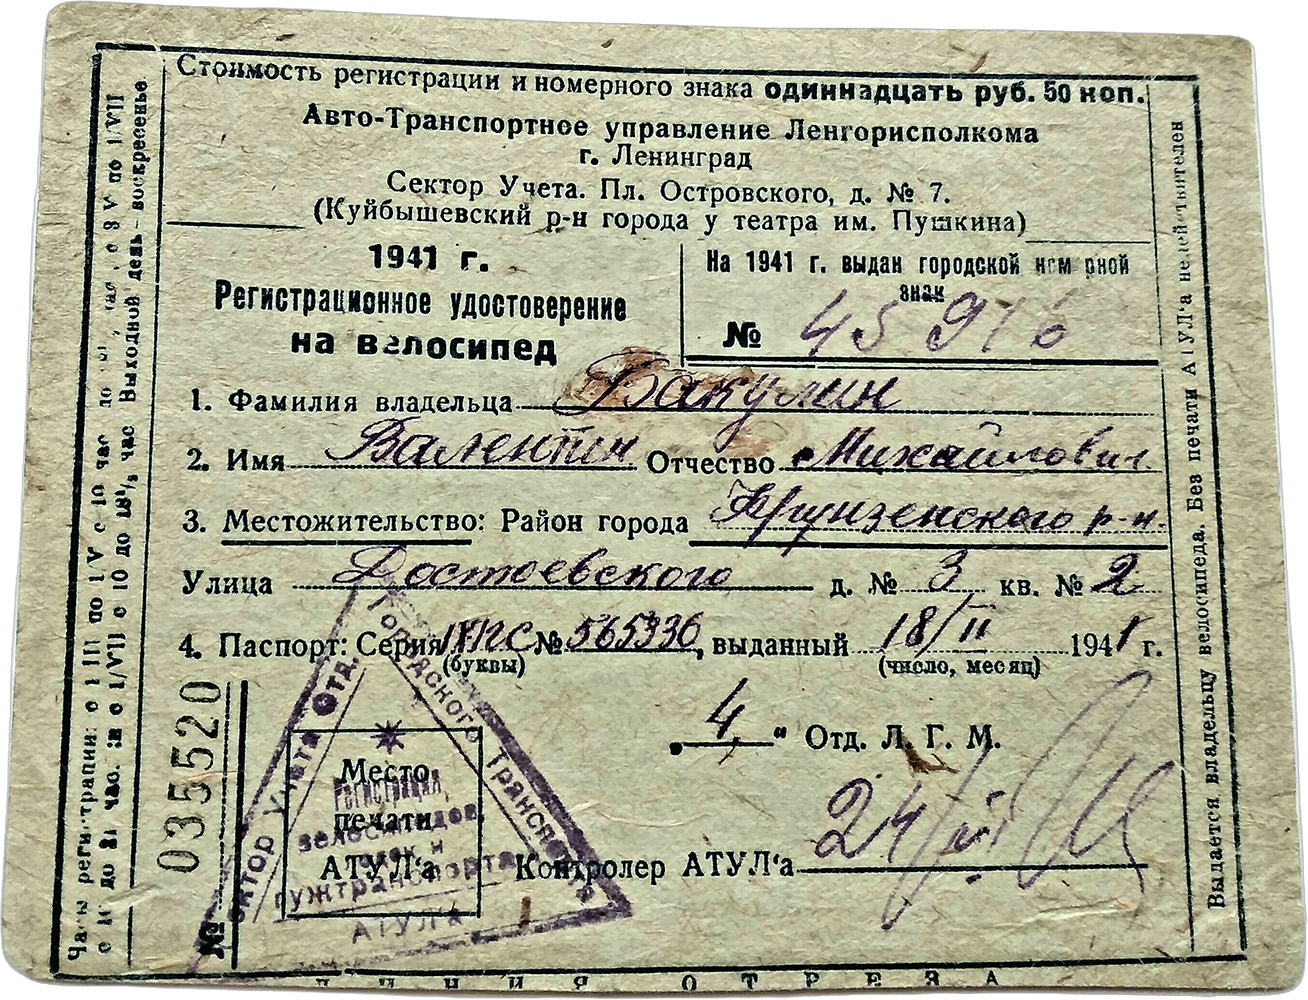 Стоимость регистрации и номерного знака одиннадцать руб. 50 коп.
Авто-Транспортное управление Ленгорисполкома
г. Ленинград
Сектор Учета. Пл. Островского, д. № 7.
(Куйбышевский р-н города у театра им. Пушкина)
1941 г.
Регистрационное удостоверение
на велосипед
На 1941 г. выдан городской ном рной
знак
№ 45916
1. Фамилия владельца Вакулин
2. Имя Валентин Отчество Михайлович
3. Местожительство: Район города Фрунзенского р-н.
Улица Достоевского д. № 3 кв. № 2
4. Паспорт: Серия № 565336, выданный 18/II 1941 г.
(буквы) (число, месяц)
„4“ Отд. Л. Г. М.
Место
печати
АТУЛ‘а
Контролер АТУЛ‘а 24/
№ 035520
Сектор Учета Отд.
Городского Транспорта
Регистрация
велосипедов
гужтранспорта
АТУЛ'а
Часы регистрации: с 1 III по 1/V с 10 час. до час., с 3 V по 1/VII
с до 21 час. с 1/VII с 10 до 18½ час Выходной день - воскресенье
Выдается владельцу велосипеда. Без печати АТУЛ‘а недействителен
ЛИНИЯ ОТРЕЗА